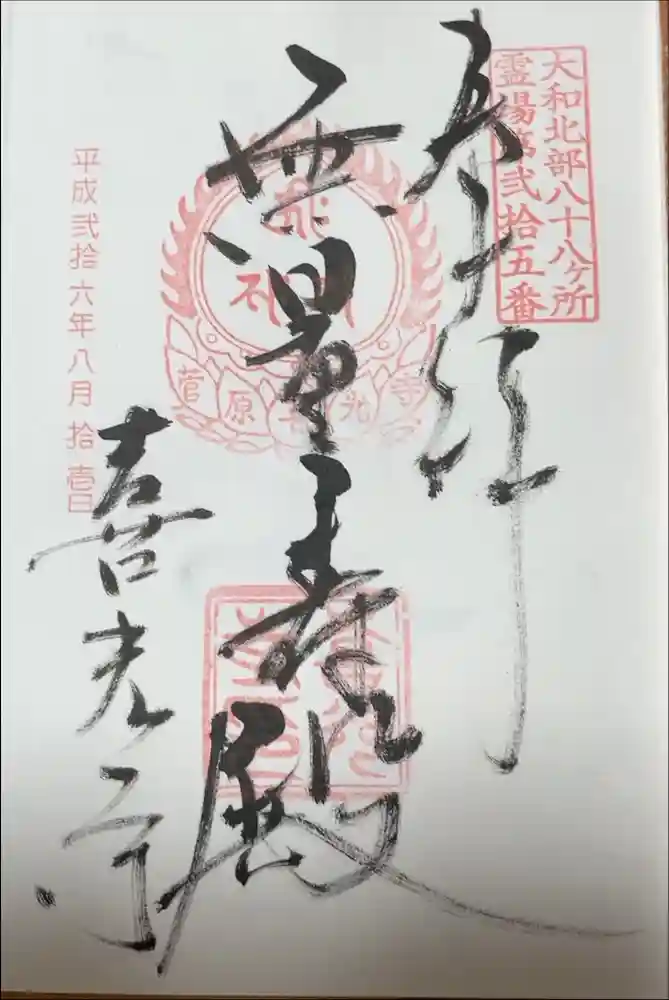 大和北部八十八ヶ所
霊場第弐拾五番
奉拝
無量寿殿
菅原喜光寺
喜光寺
平成弐拾六年八月拾壱日